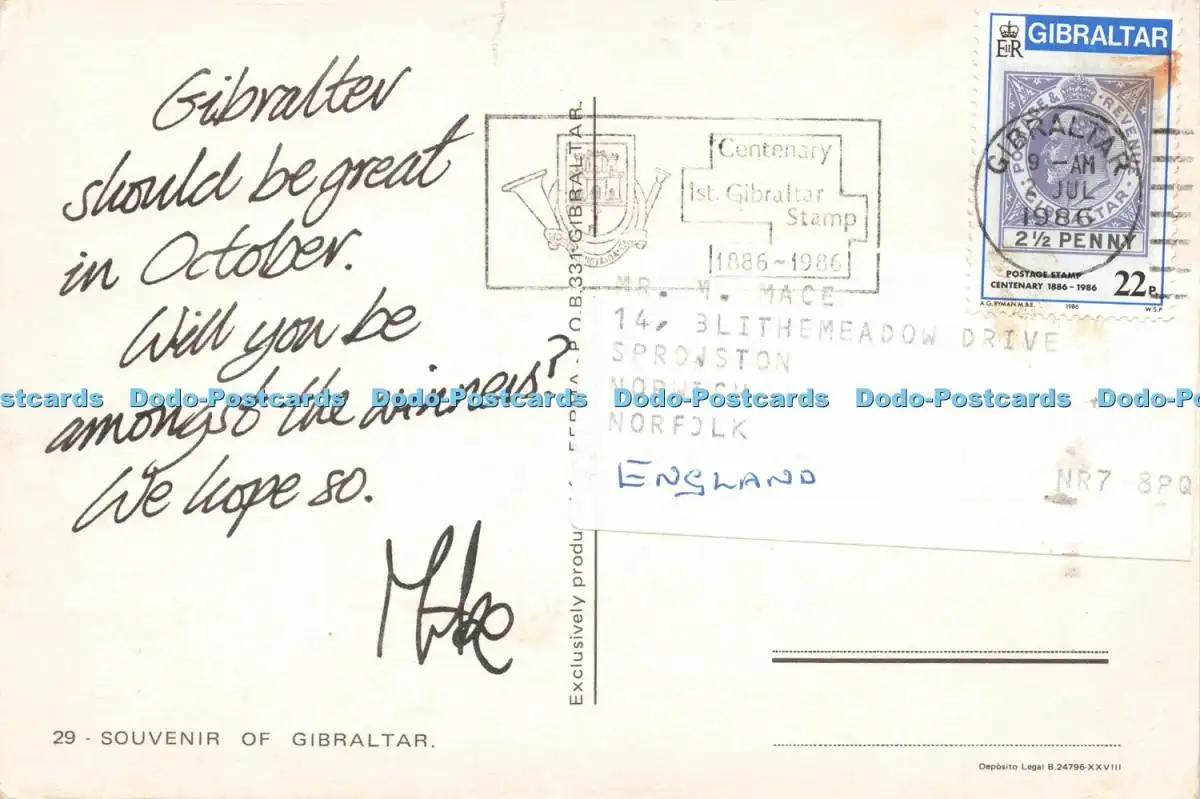 Gibralter
should be great
in October.
Will you be
amongst the winners?
We hope so.
Mike
29 - SOUVENIR OF GIBRALTAR.
Exclusively produ
P.O.B.331-GIBRALTAR.
Centenary
1st. Gibraltar
Stamp
1886~1986
EIIR
GIBRALTAR
POSTAGE & REVENUE
GIBRALTAR
2½ PENNY
POSTAGE STAMP
CENTENARY 1886-1986
22P.
A.G.RYMAN M.B.E.
1986
W.S.P.
GIBRALTAR
9 -AM
JUL
1986
MR. M. MACE
14, BLITHEMEADOW DRIVE
SPROWSTON
NORWICH
NORFOLK
ENGLAND
NR7 8PQ
stcards Dodo-Postcards Dodo-Postcards Dodo-Postcards Dodo-Postcards Dodo-Po
Depósito Legal B.24796-XXVIII